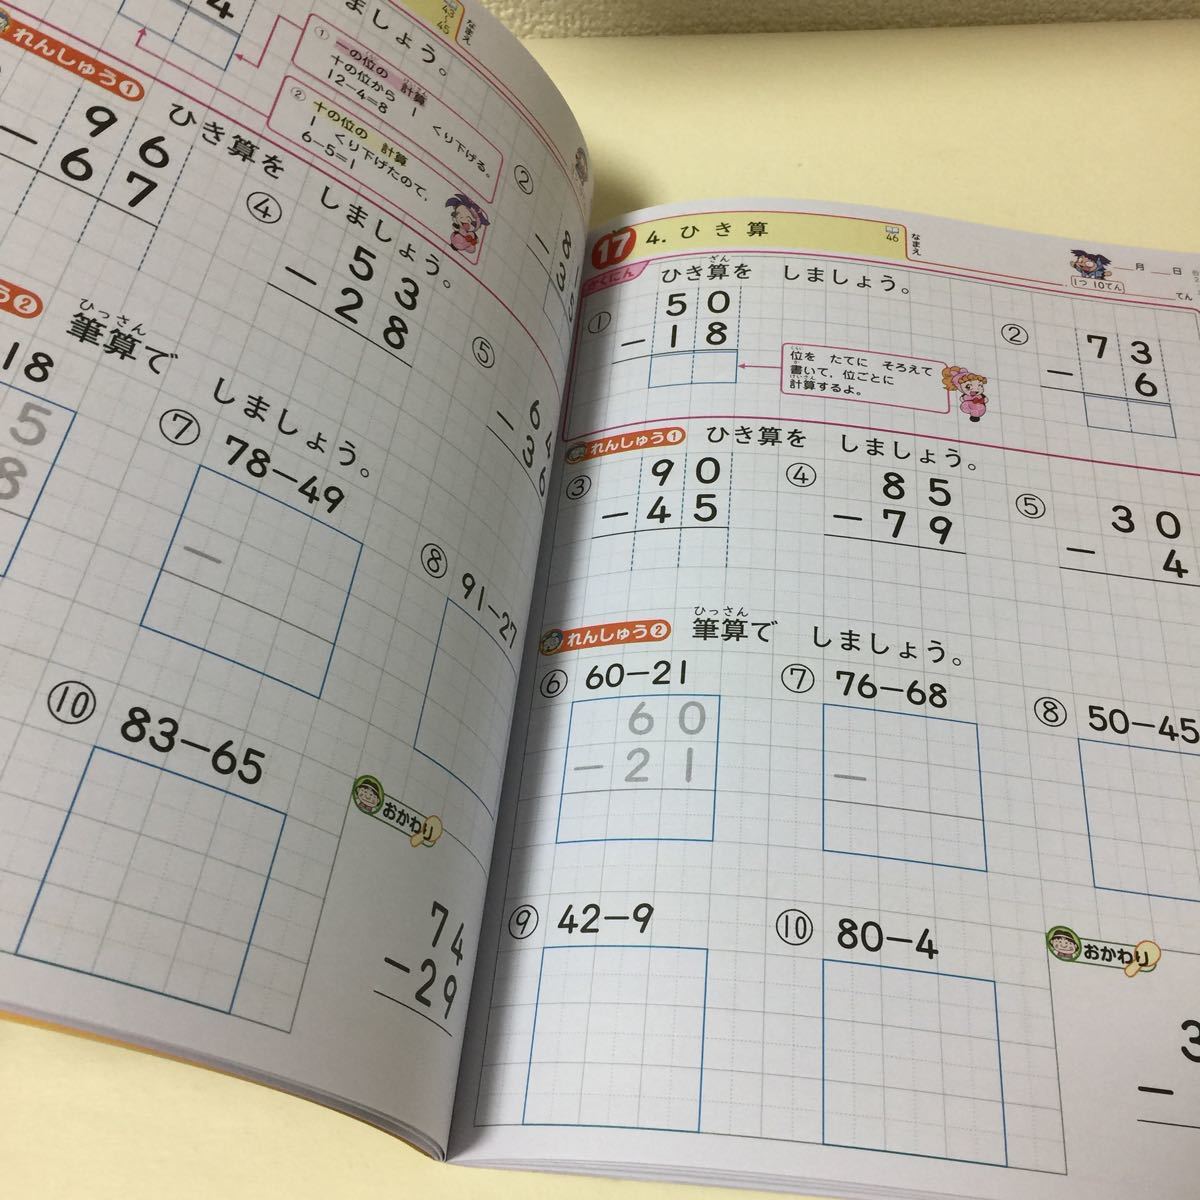 4
43~45
なまえ
ましょう。
① 一の位の 計算
十の位から 1 くり下げる。
12-4=8
② 十の位の 計算
1 くり下げたので、
6-5=1
れんしゅう① ひき算を しましょう。
96
-67
②
④ 53
-28
⑤ 64
-36
② 筆算で しましょう。
ひっさん
18
5
8
⑦ 78-49
-
⑧ 91-27
⑩ 83-65
おかわり
74
-29
17 4. ひき算
46
なまえ
月 日
1つ 10てん
てん
かくにん ひき算を しましょう。
ざん
① 50
-18
② 73
- 6
位を たてに そろえて
書いて、位ごとに
計算するよ。
れんしゅう① ひき算を しましょう。
③ 90
-45
④ 85
-79
⑤ 30
- 4
れんしゅう② 筆算で しましょう。
ひっさん
⑥ 60-21
60
-21
⑦ 76-68
-
⑧ 50-45
⑨ 42-9
⑩ 80-4
おかわり
3
-